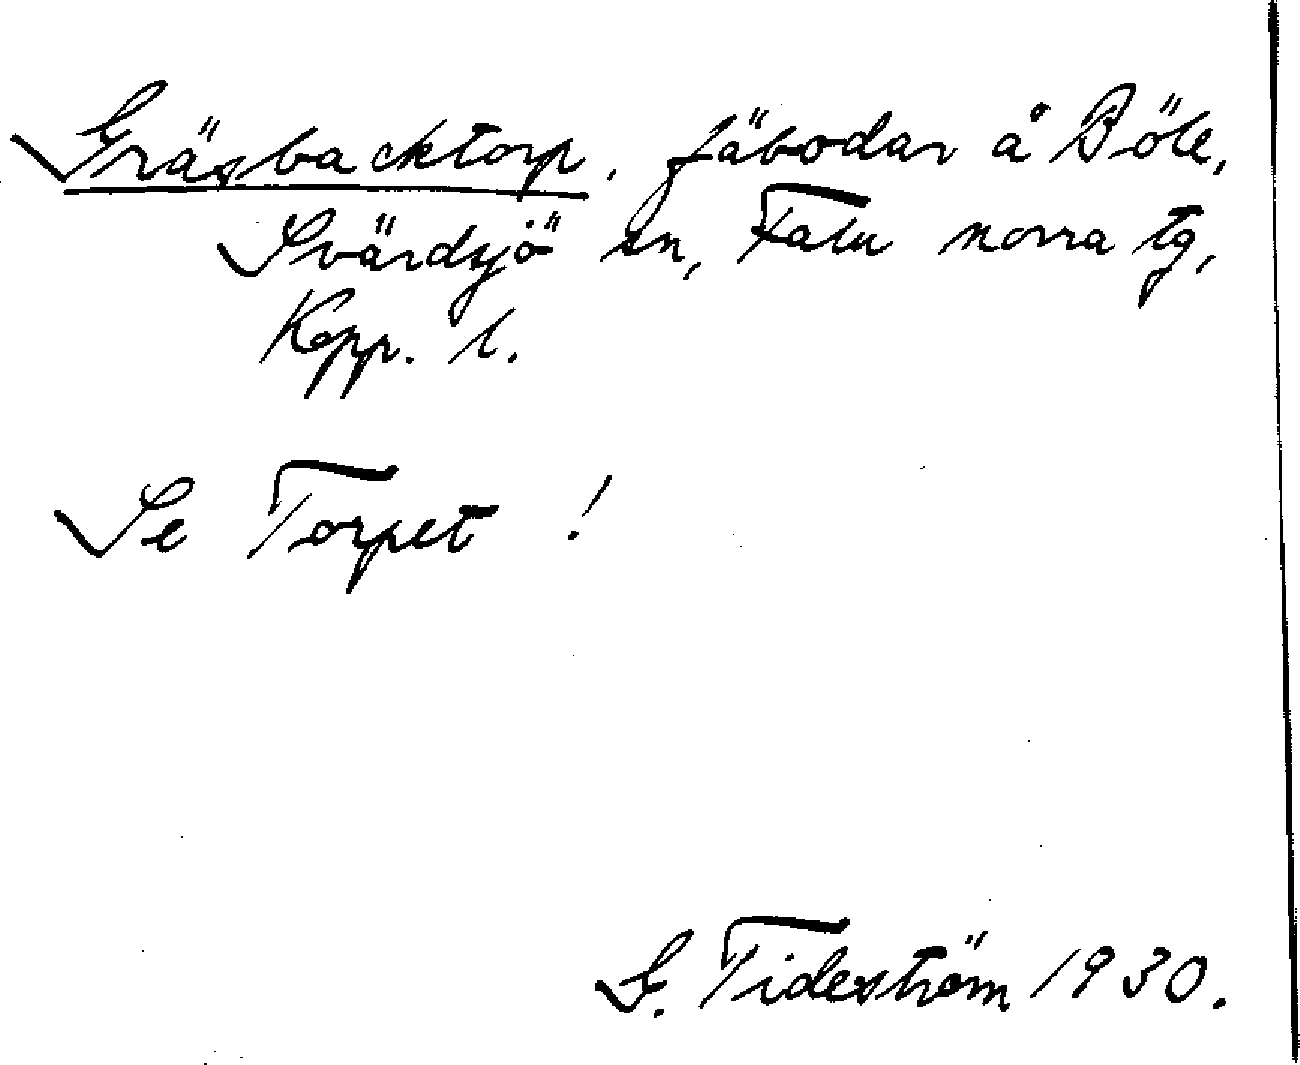 Gräsbacktorp, fäbodar å Böle,
Svärdsjö sn, Falu norra tg,
Kopp. l.
Se Torpet !
G. Tideström 1930.